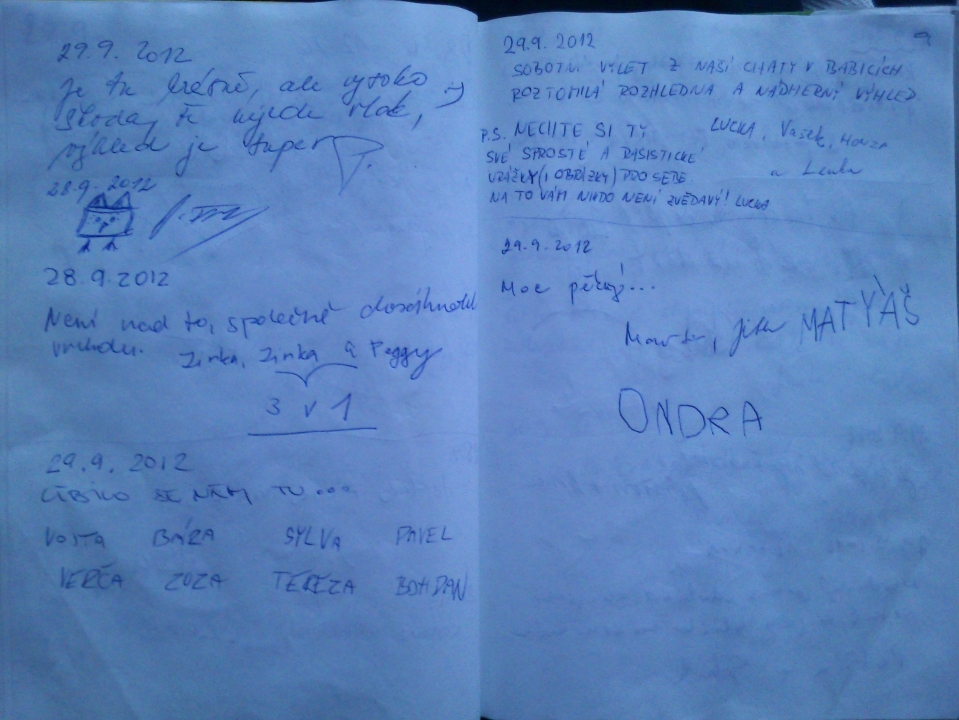 29.9. 2012
Je tu krásně, ale vysoko :-)
škoda,
výhled je super
28.9. 2012
28.9.2012
Není nad to, společně dosáhnout
vrcholu.
Zinka, Zinka a Peggy
3 v 1
29.9. 2012
LÍBILO SE NÁM TU...
VOJTA BÁRA SYLVA PAVEL
VERČA ZUZA TEREZA BOHDAN
9
29.9. 2012
SOBOTNÍ VÝLET Z NAŠÍ CHATY V BABICÍCH
ROZTOMILÁ ROZHLEDNA A NÁDHERNÝ VÝHLED
LUCKA, Vašek, HONZA
a Lenka
P.S. NECHTE SI TY
SVÉ SPROSTÉ A RASISTICKÉ
URÁŽKY (I OBRÁZKY) PRO SEBE
NA TO VÁM NIKDO NENÍ ZVĚDAVÝ! LUCKA
29.9. 2012
Moc pěkný...
MATYÁŠ
ONDRA